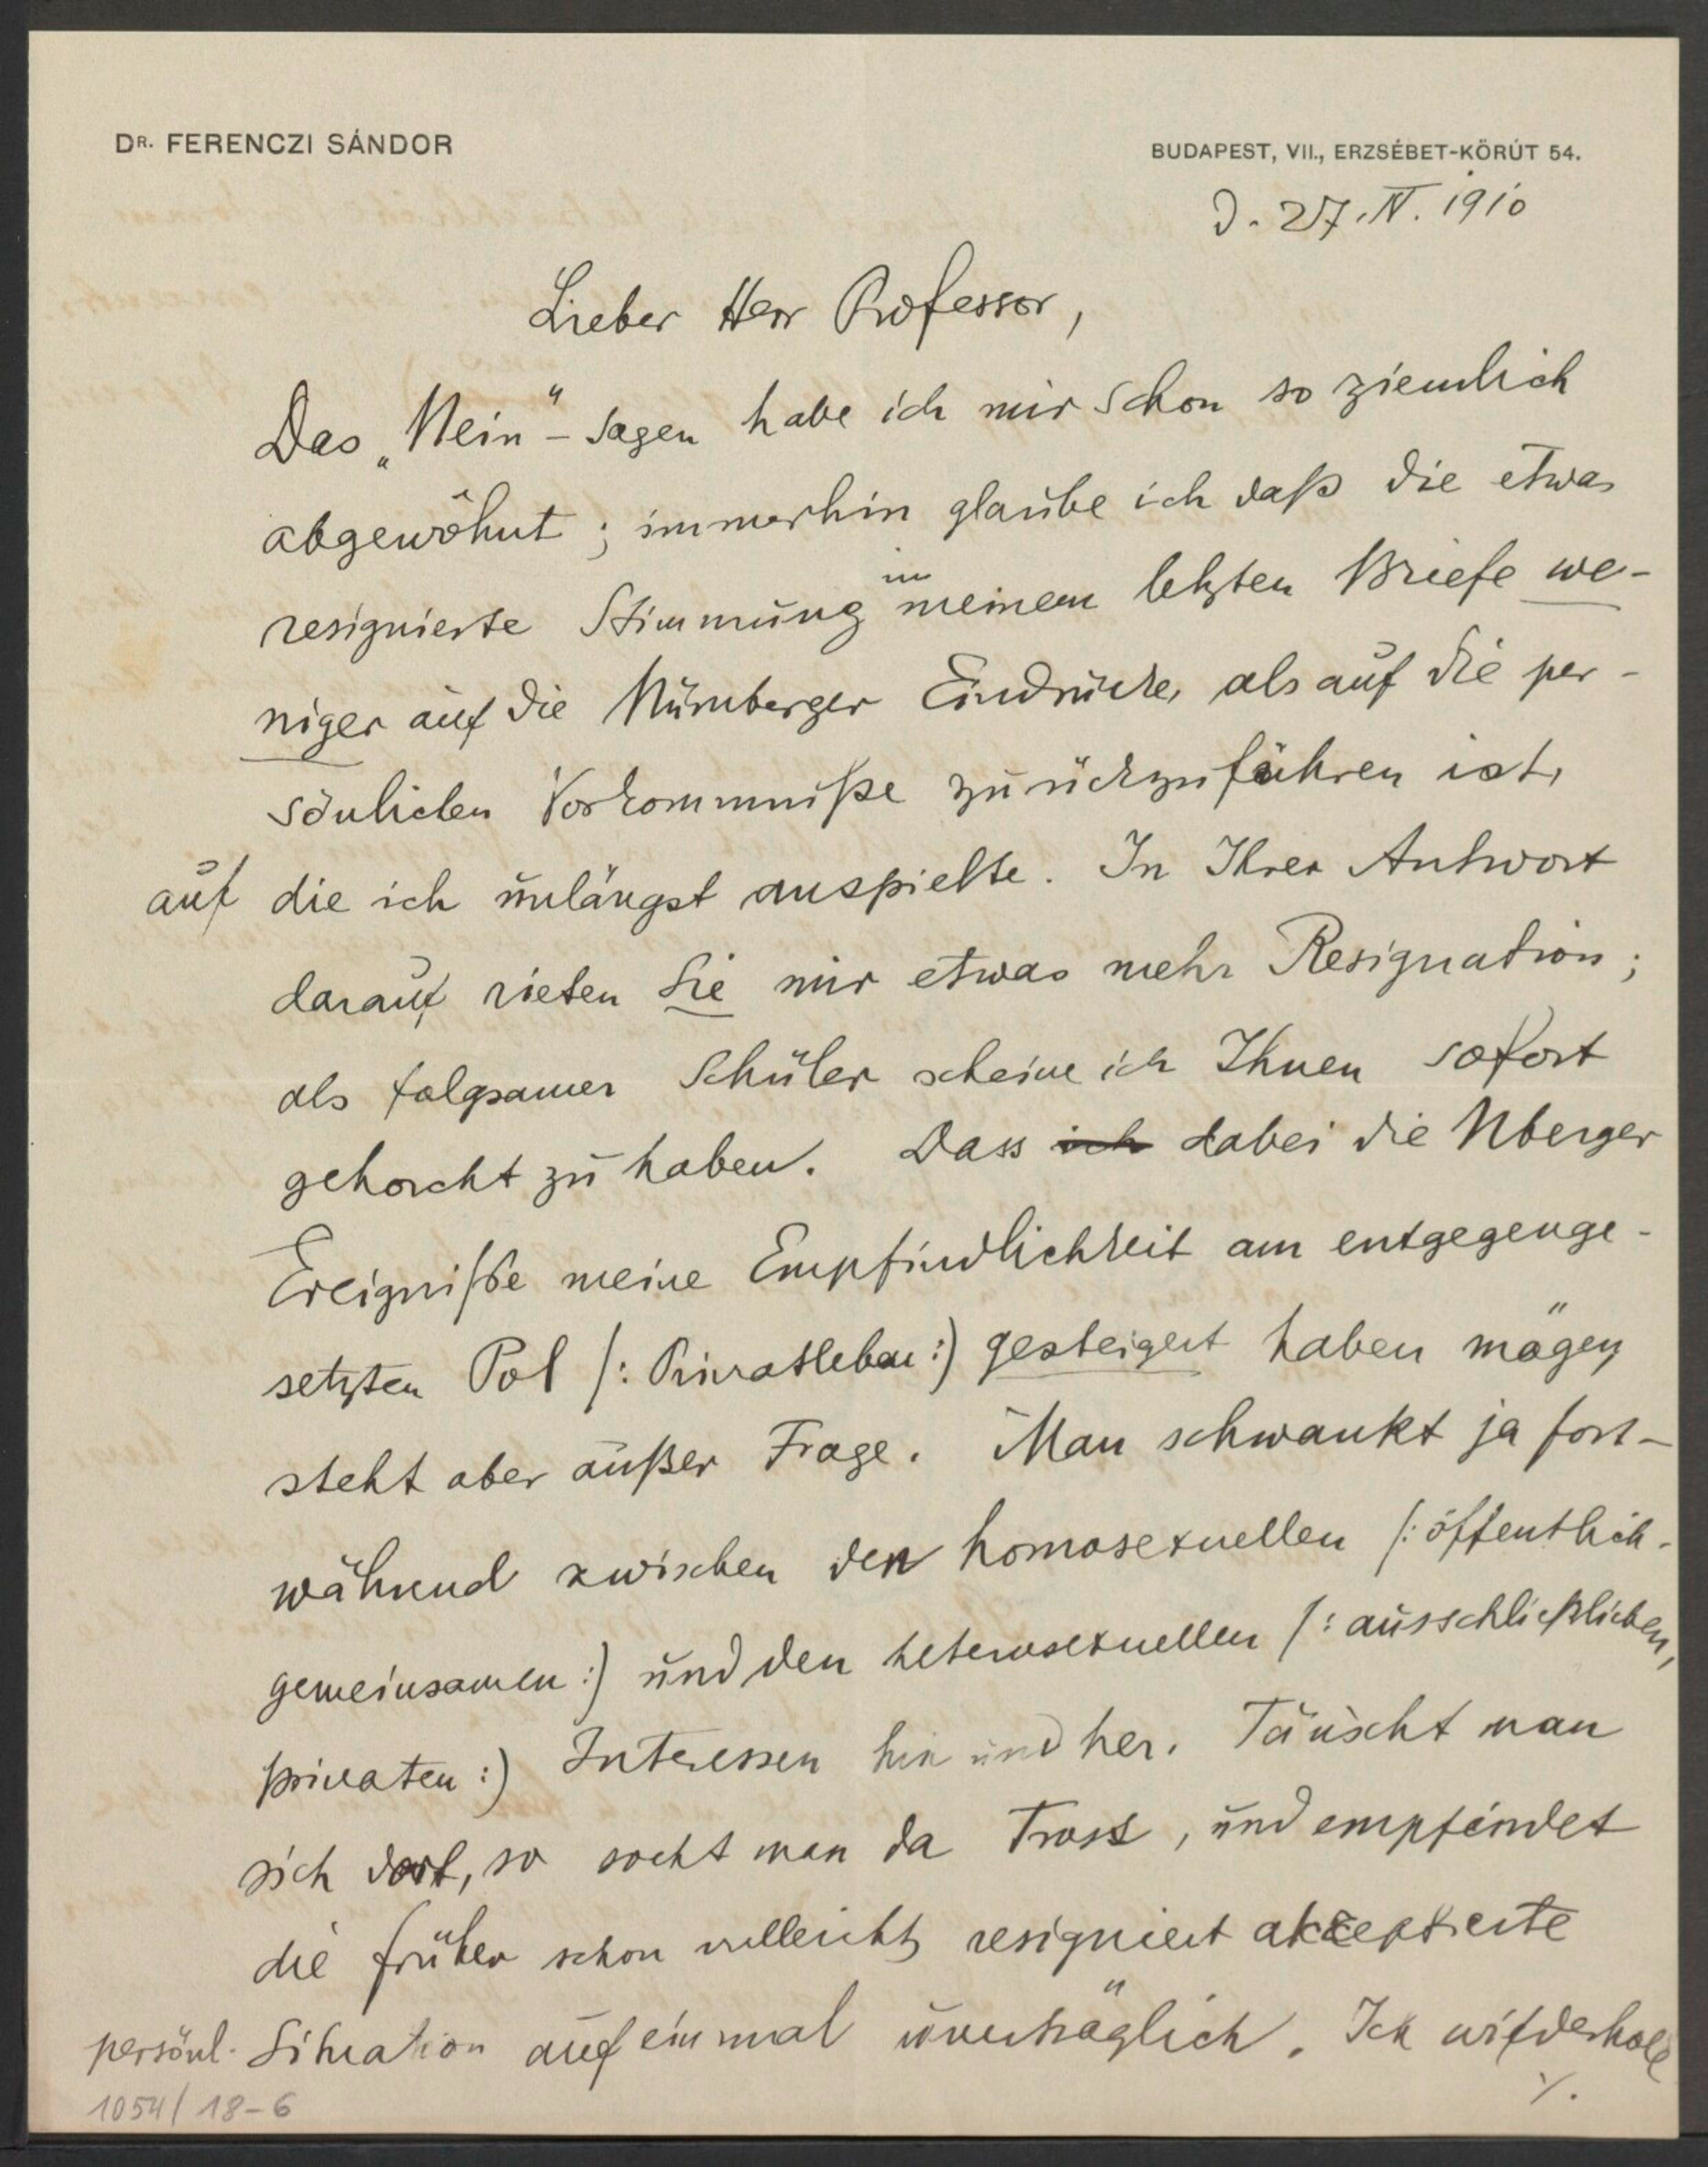 DR. FERENCZI SÁNDOR
BUDAPEST, VII., ERZSÉBET-KÖRÚT 54.
d. 27. IV. 1910
Lieber Herr Professor,
Das „Nein“-sagen habe ich mir schon so ziemlich
abgewöhnt; immerhin glaube ich daß die etwas
resignierte Stimmung in meinem letzten Briefe we-
niger auf die Nürnberger Eindrücke, als auf die per-
sönlichen Vorkommniße zurückzuführen ist,
auf die ich unlängst anspielte. In Ihrer Antwort
darauf rieten Sie mir etwas mehr Resignation;
als folgsamer Schüler scheine ich Ihnen sofort
gehorcht zu haben. Dass ich dabei die Nberger
Ereigniße meine Empfindlichkeit am entgegenge-
setzten Pol /: Privatleben :) gesteigert haben mögen,
steht aber außer Frage. Man schwankt ja fort-
während zwischen den homosexuellen /: öffentlich-
gemeinsamen :) und den heterosexuellen /: ausschließlichen,
privaten :) Interessen hin und her. Täuscht man
sich dort, so sucht man da Trost, und empfindet
die früher schon vielleicht resigniert akzeptierte
persönl. Situation auf einmal unerträglich. Ich wiederhole
./.
1054/18-6